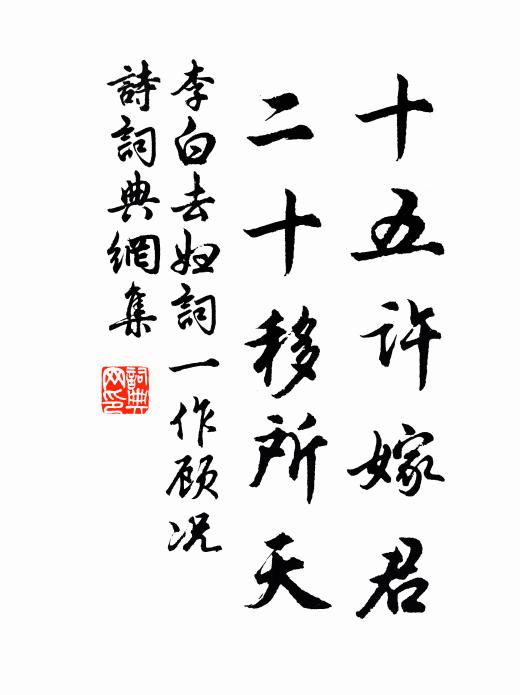 十五许嫁君
二十移所天
李白去妇詞一作顾况
詩詞典網集
詞典網印